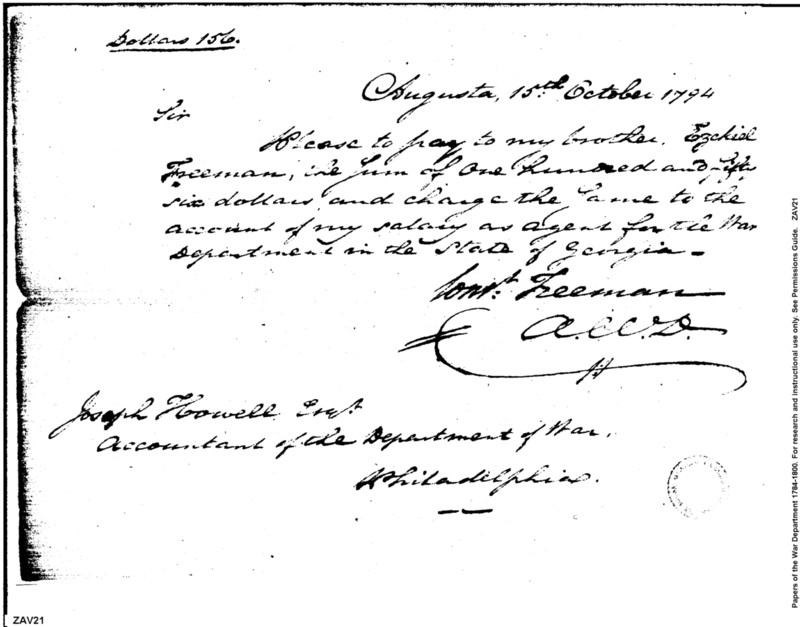 Dollars 156.
Augusta, 15th October 1794
Sir
Please to pay to my brother, Ezekiel
Freeman, the Sum of One hundred and fifty
six dollars, and charge the Same to the
account of my salary as agent for the War
Department in the State of Georgia —
Const. Freeman
A.W.D.
Joseph Howell Esqr.
Accountant of the Department of War.
Philadelphia.
ZAV21
Papers of the War Department 1784-1800. For research and instructional use only. See Permissions Guide. ZAV21